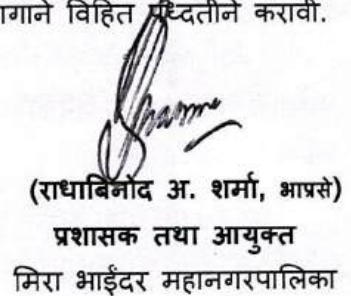 विहित पध्दतीने करावी.
(राधाबिनोद अ. शर्मा, भाप्रसे)
प्रशासक तथा आयुक्त
मिरा भाईंदर महानगरपालिका